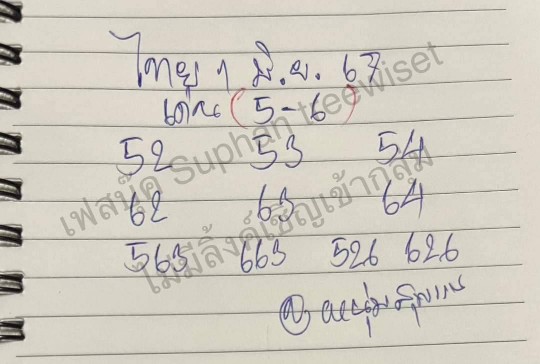 ไทย 1 มิ.ย. 67
เด่น (5-6)
52 53 54
62 63 64
563 663 526 626
เฟสบุ๊ค Suphan treewiset
ไม่มีลิ้งค์เชิญเข้ากลุ่ม